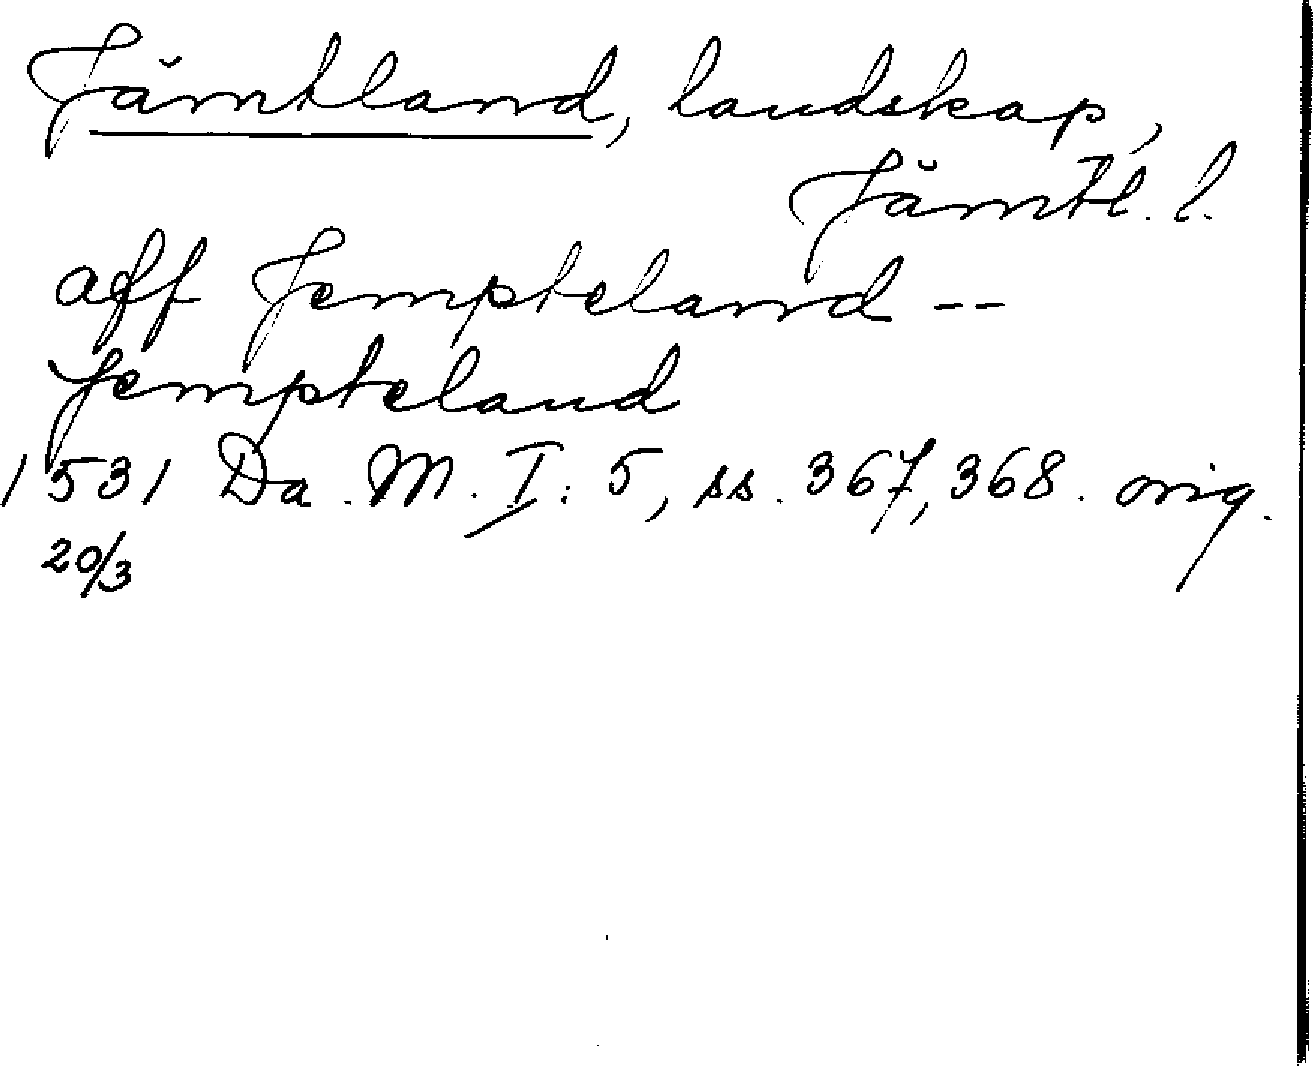 Jämtland, landskap,
Jämtl. l.
aff Jempteland --
Jempteland
1531 Da. M. I: 5, ss. 367, 368. orig.
20/3